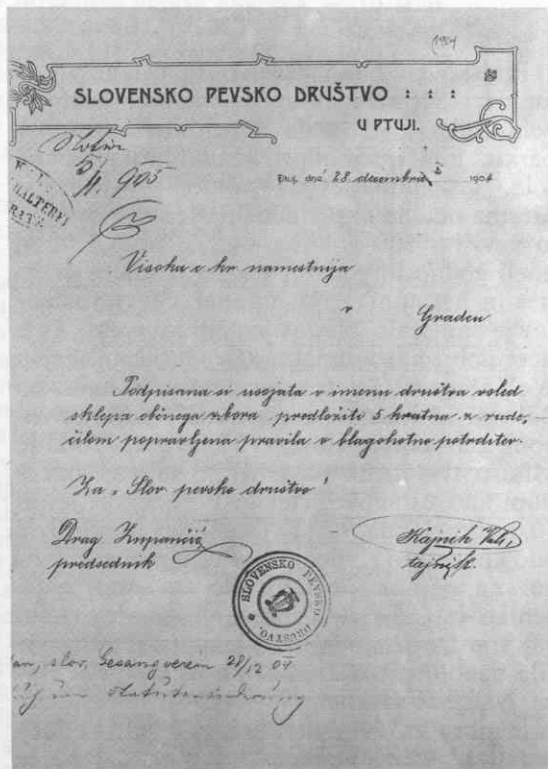 1904
SLOVENSKO PEVSKO DRUŠTVO : : :
U PTUJI.
5/1. 905
Ptuj, dné 28 decembra 1904
STATTHALTEREI
GRATZ
Visoka c kr namestnija
v Gradcu
Podpisana si usojata v imenu društva vsled
sklepa občnega zbora predložiti 5 kratna z rude,
čilom popravljena pravila v blagohotno potrditev.
Za „Slov. pevsko društvo"
Drag. Zupančič Kajnih
predsednik tajnik.
SLOVENSKO PEVSKO DRUŠTVO.
slov. Gesangverein 28/12 04
um Statutenänderung